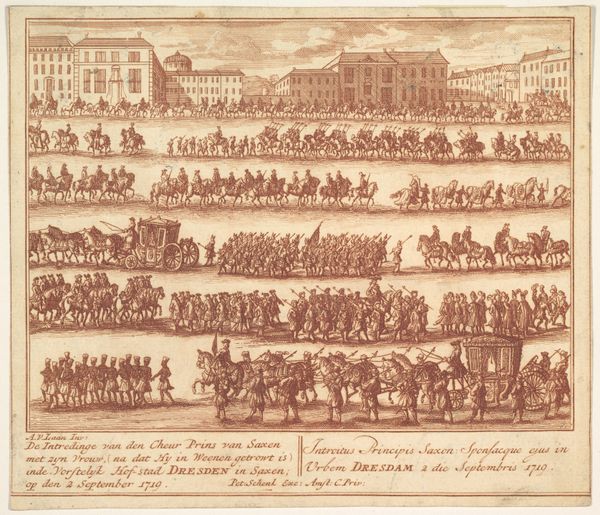 A.V. Laan Inv:
De Intredinge van den Cheur Prins van Saxen
met zyn Vrouw, (na dat Hy in Weenen getrowt is)
inde Vorstelyk Hof stad DRESDEN in Saxen;
op den 2 September 1719.
Introitus Principis Saxon: Sponsacque ejus in
Urbem DRESDAM 2 die Septembris 1719.
Pet: Schenk Exc: Amst: C. Priv: